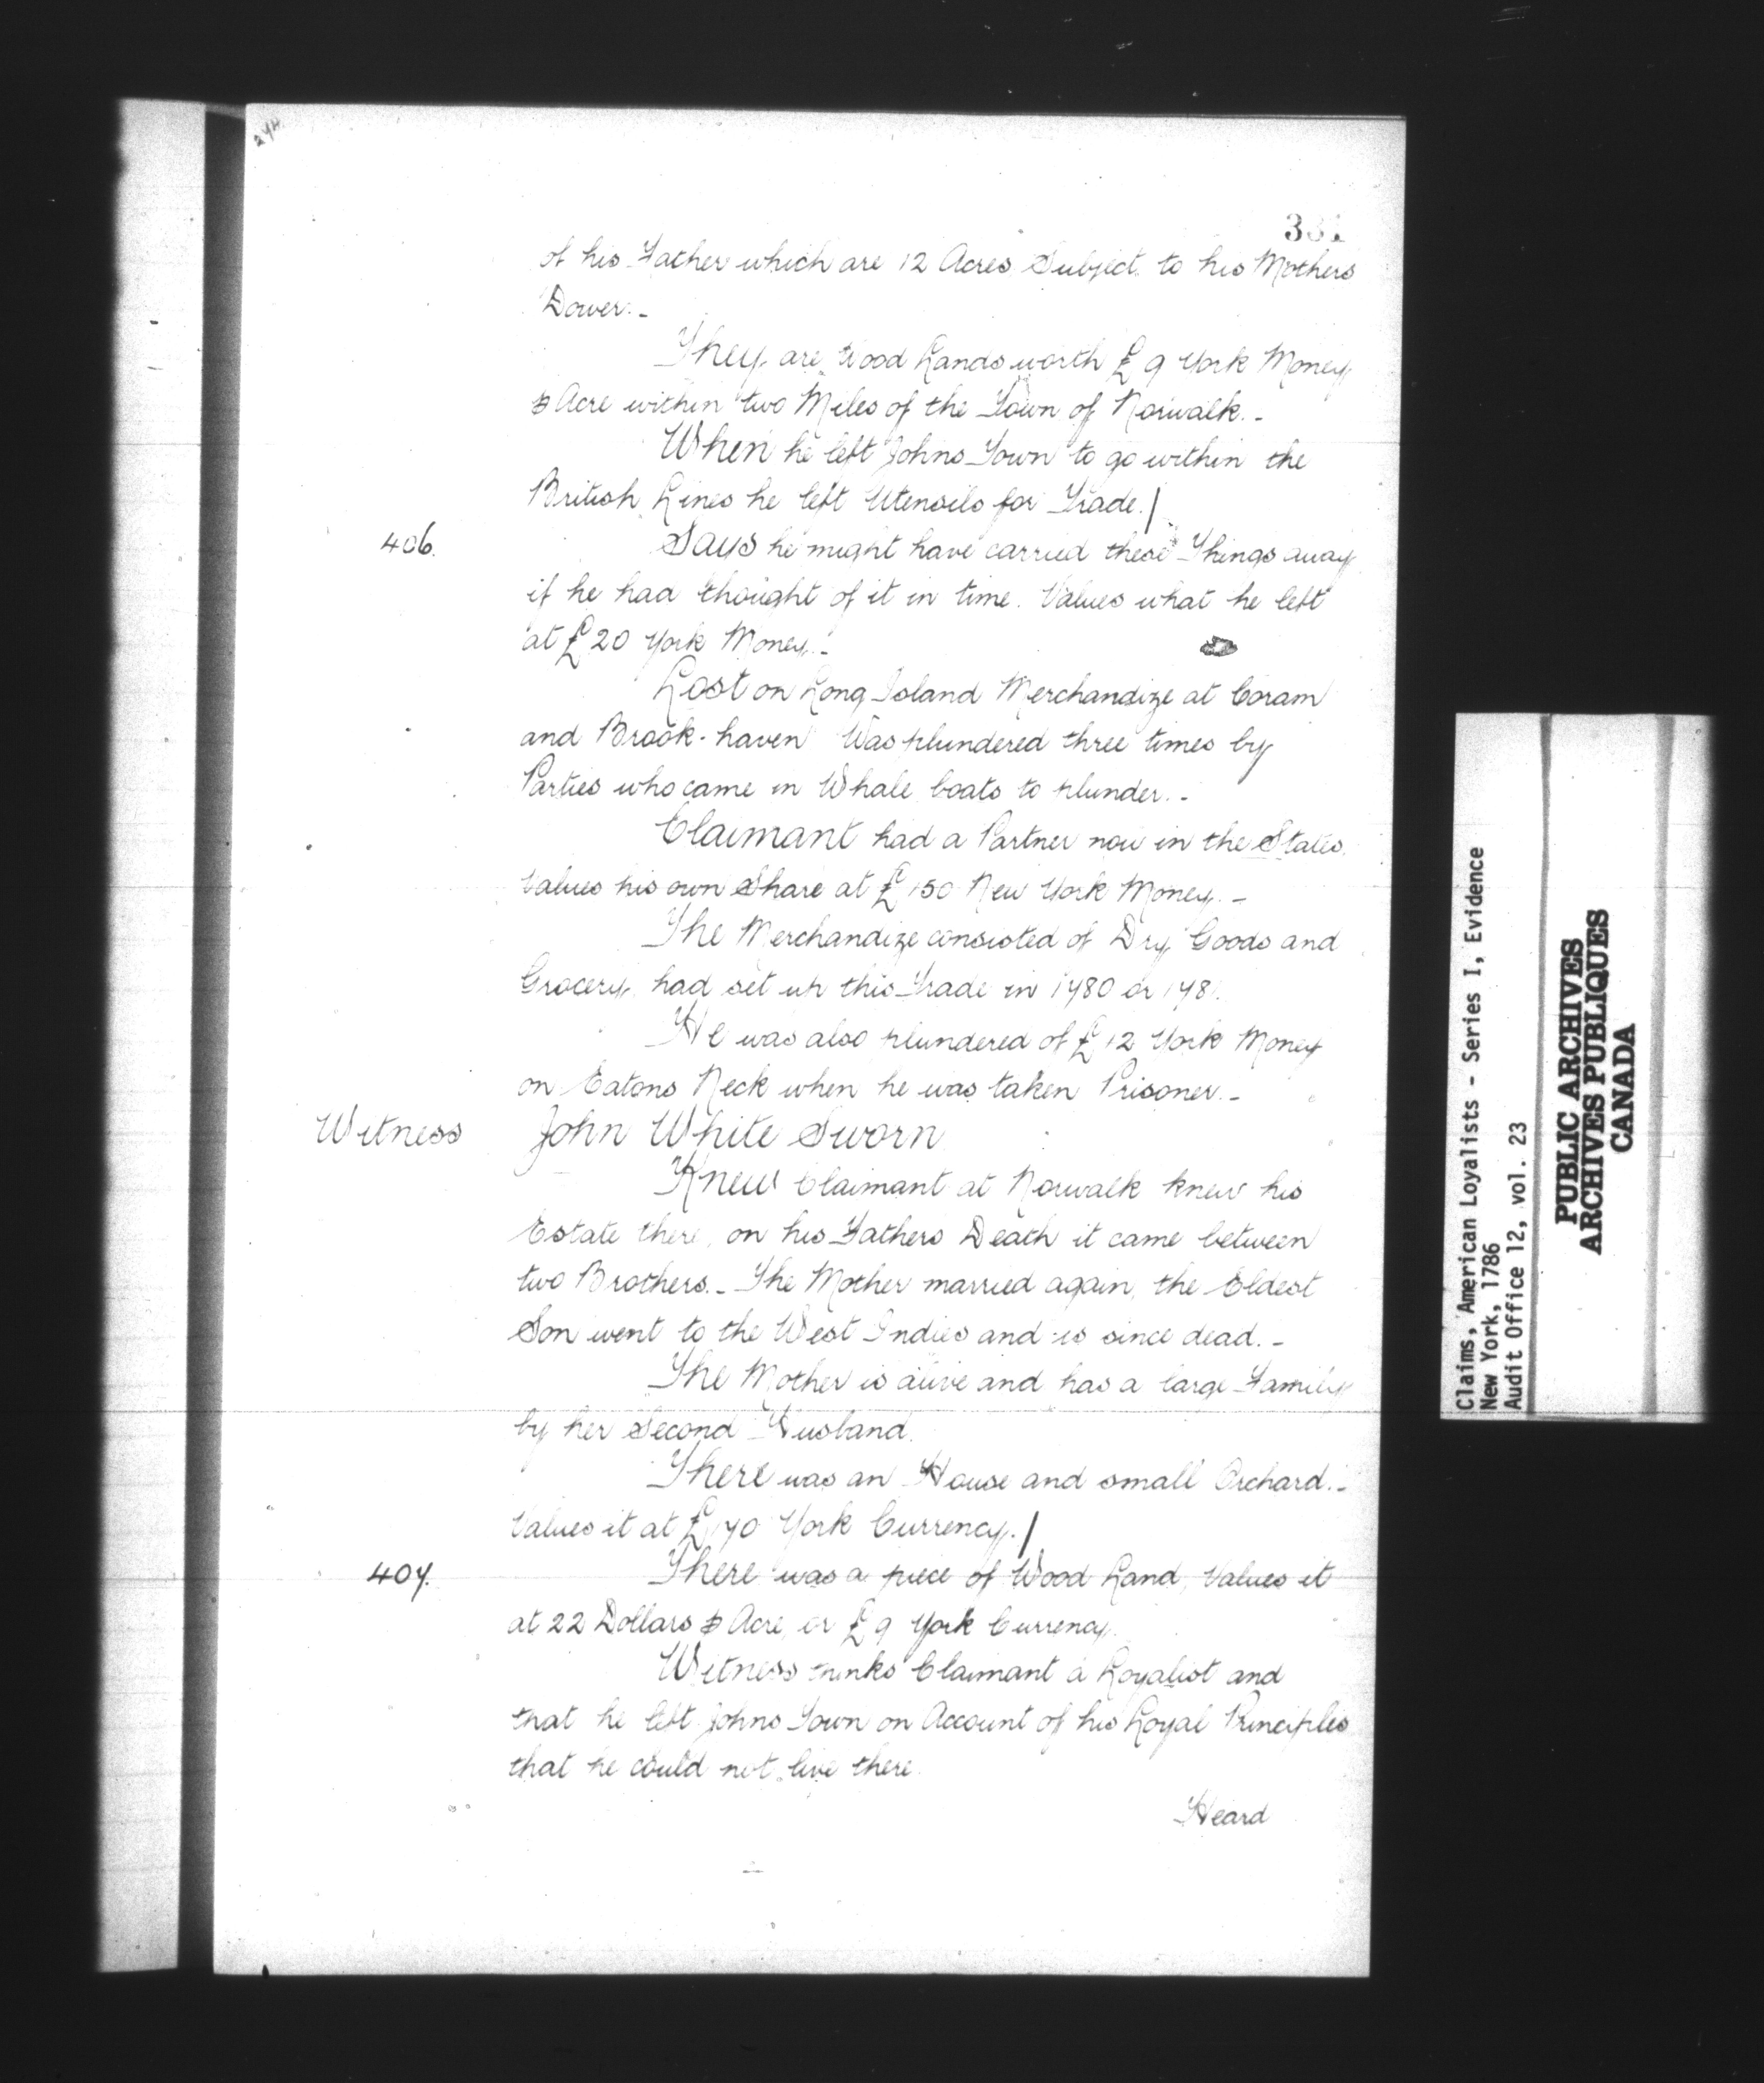 331
of his Father which are 12 Acres Subject to his Mothers
Dower.-
They are Wood Lands worth £9 York Money
⅌ Acre within two Miles of the Town of Norwalk.-
When he left Johns Town to go within the
British Lines he left Utensils for Trade./
406.
Says he might have carried these Things away
if he had thought of it in time. Values what he left
at £20 York Money.-
Lost on Long Island Merchandize at Coram
and Brook-haven Was plundered three times by
Parties who came in Whale boats to plunder.-
Claimant had a Partner now in the States.
Values his own Share at £150 New York Money.-
The Merchandize consisted of Dry Goods and
Grocery, had set up this Trade in 1780 or 1781.
He was also plundered of £12 York Money
on Eatons Neck when he was taken Prisoner.-
Witness John White Sworn
Knew Claimant at Norwalk knew his
Estate there, on his Fathers Death it came between
two Brothers.- The Mother married again, the Eldest
Son went to the West Indies and is since dead.-
The Mother is alive and has a large Family
by her Second Husband.
There was an House and small Orchard.-
Values it at £170 York Currency./
407.
There was a piece of Wood Land, Values it
at 22 Dollars ⅌ Acre, or £9 York Currency.
Witness thinks Claimant a Loyalist and
that he left Johns Town on Account of his Loyal Principles
that he could not live there.
Heard
Claims, American Loyalists - Series I, Evidence
New York, 1786
Audit Office 12, vol. 23
PUBLIC ARCHIVES
ARCHIVES PUBLIQUES
CANADA